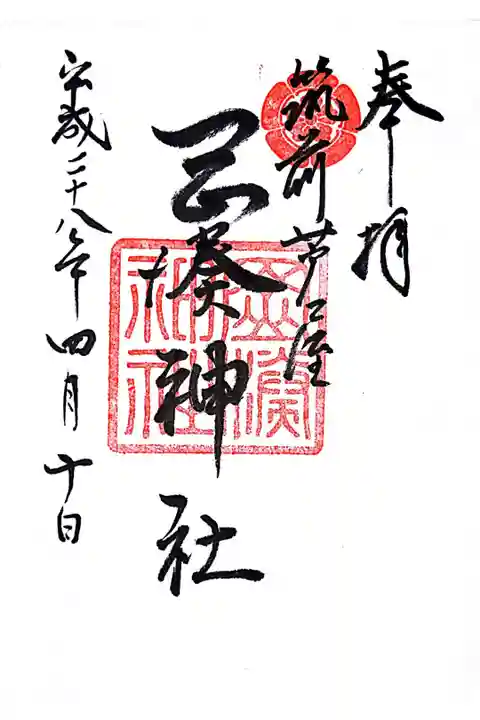 奉拝
筑前芦屋
岡湊神社
岡湊
神社
平成二十八年四月十日